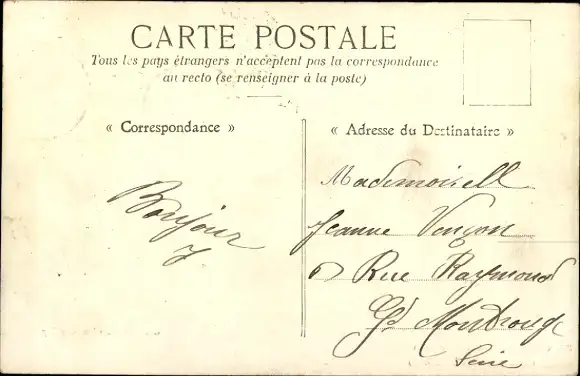 CARTE POSTALE
Tous les pays étrangers n'acceptent pas la correspondance
au recto (se renseigner à la poste)
« Correspondance »
« Adresse du Destinataire »
Bonjour
Mademoisell
Jeanne
Rue Raymond
Gd Montrouge
Seine